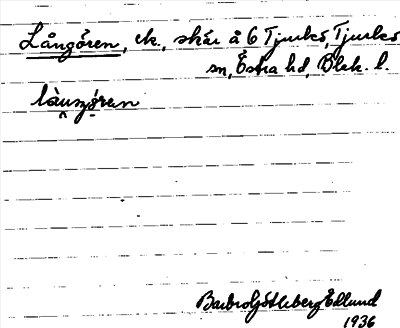 Långören, ek., skär å 6 Tjurkö, Tjurkö
sn, Östra hd, Blek. l.
làuŋọ̈ren
Barbro Götheberg Edlund
1936